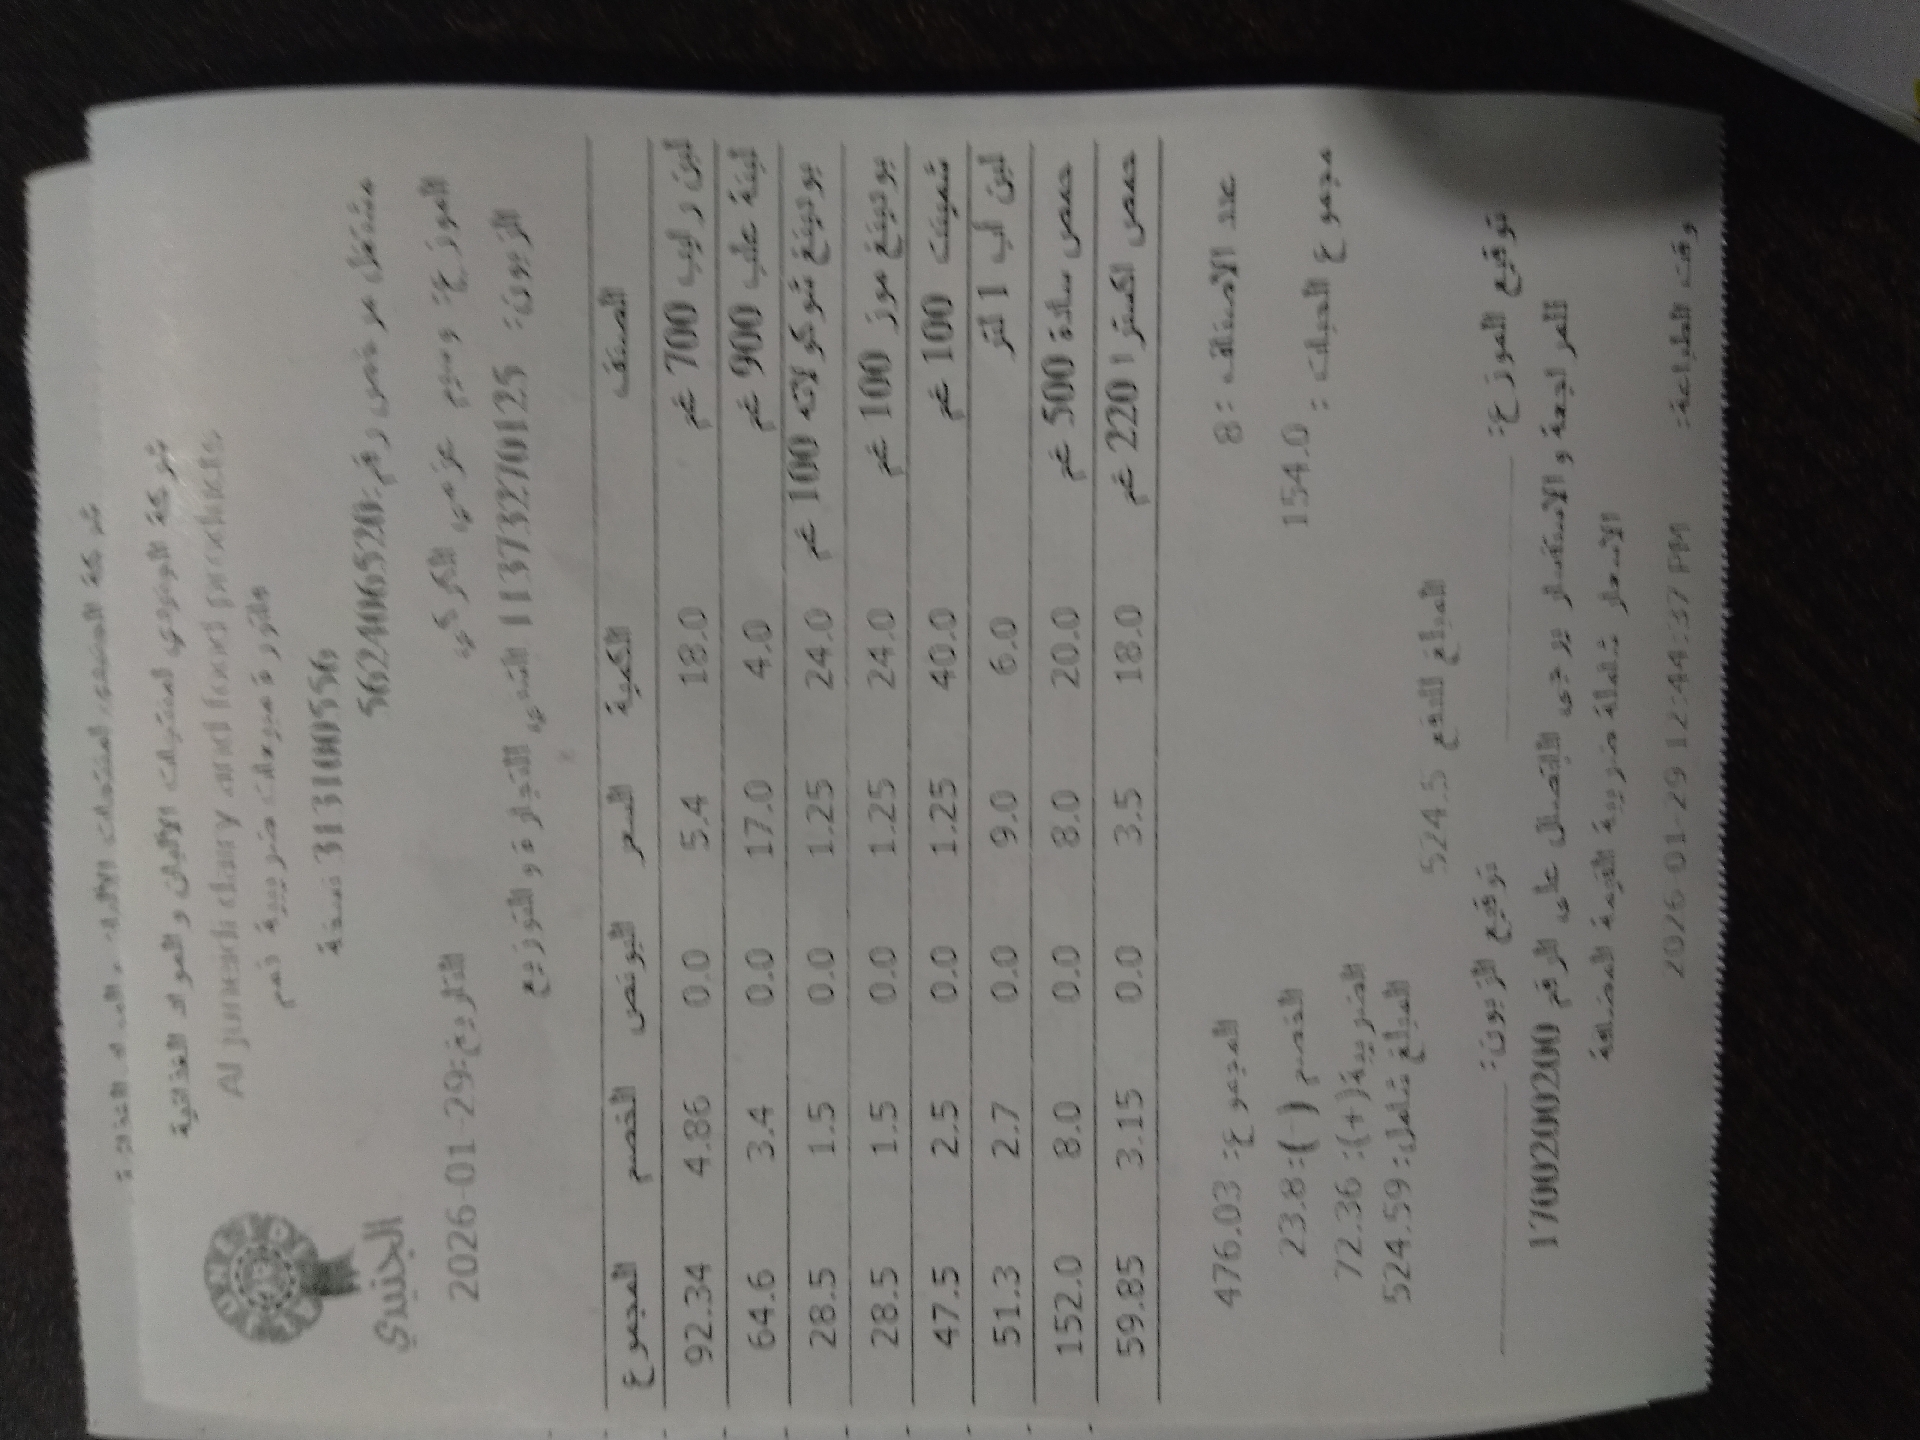 شركة الجنيدي لمنتجات الألبان والمواد الغذائية
شركة الجنيدي لمنتجات الألبان والمواد الغذائية
Al juneidi dairy and food products
فاتورة مبيعات ضريبية ذمم
3131100556 نسخة
مشتغل مرخص رقم:562406520
الجنيدي
الموزع: وسيم عزمي الكركي
التاريخ:29-01-2026
الزبون: 11373270125 التجارة والتوزيع
الصنف الكمية السعر البونص الخصم المجموع
لبن رايب 700 غم 18.0 5.4 0.0 4.86 92.34
لبنة علب 900 غم 4.0 17.0 0.0 3.4 64.6
بودينغ شوكولاته 100 غم 24.0 1.25 0.0 1.5 28.5
بودينغ موز 100 غم 24.0 1.25 0.0 1.5 28.5
شمينت 100 غم 40.0 1.25 0.0 2.5 47.5
لبن أب 1 لتر 6.0 9.0 0.0 2.7 51.3
حمص سادة 500 غم 20.0 8.0 0.0 8.0 152.0
حمص اكسترا 220 غم 18.0 3.5 0.0 3.15 59.85
عدد الاصناف: 8 المجموع: 476.03
مجموع الحبات: 154.0
الخصم (-): 23.8
الضريبة(+): 72.36
المبلغ شامل: 524.59
المبلغ للدفع 524.5
توقيع الموزع: توقيع الزبون:
للمراجعة والاستفسار يرجى الاتصال على الرقم 1700200200
الاسعار شاملة ضريبة القيمة المضافة
وقت الطباعة: 2026-01-29 12:44:37 PM